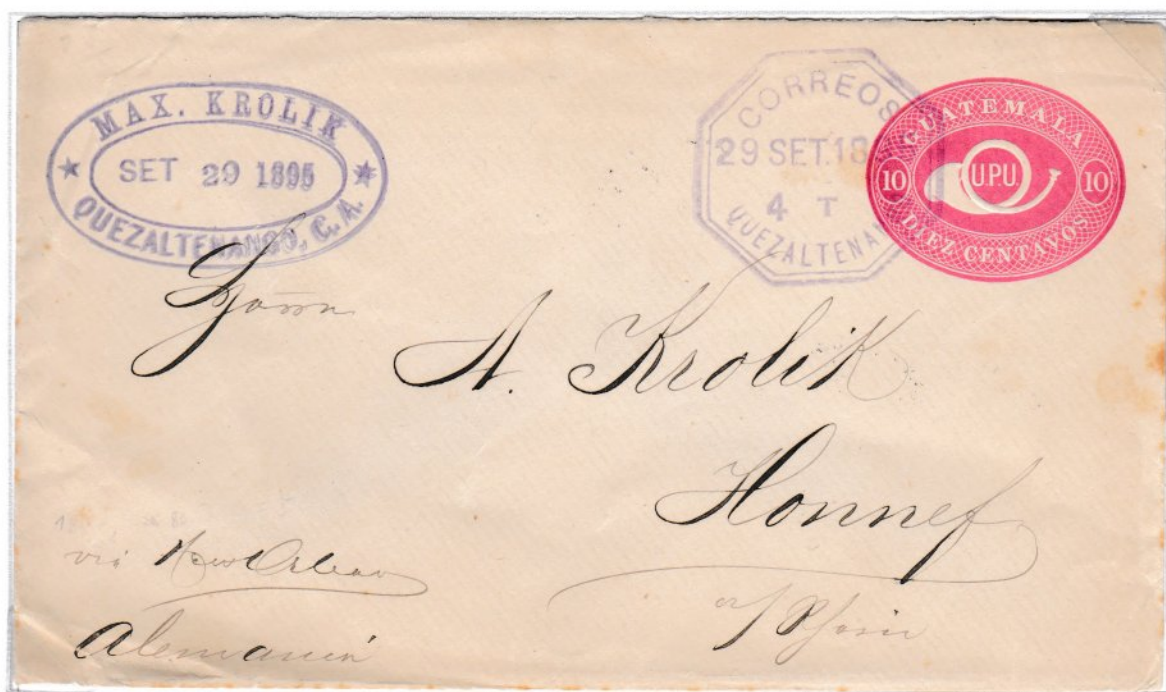 MAX. KROLIK
SET 29 1895
QUEZALTENANGO, C. A.
CORREOS
29 SET.18
4 T
QUEZALTENAN
GUATEMALA
10 U.P.U. 10
DIEZ CENTAVOS
Herrn
A. Krolik
Honnef
a/ Rhein
via New Orleans
Alemania